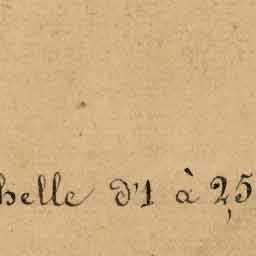 helle d'1 à 25